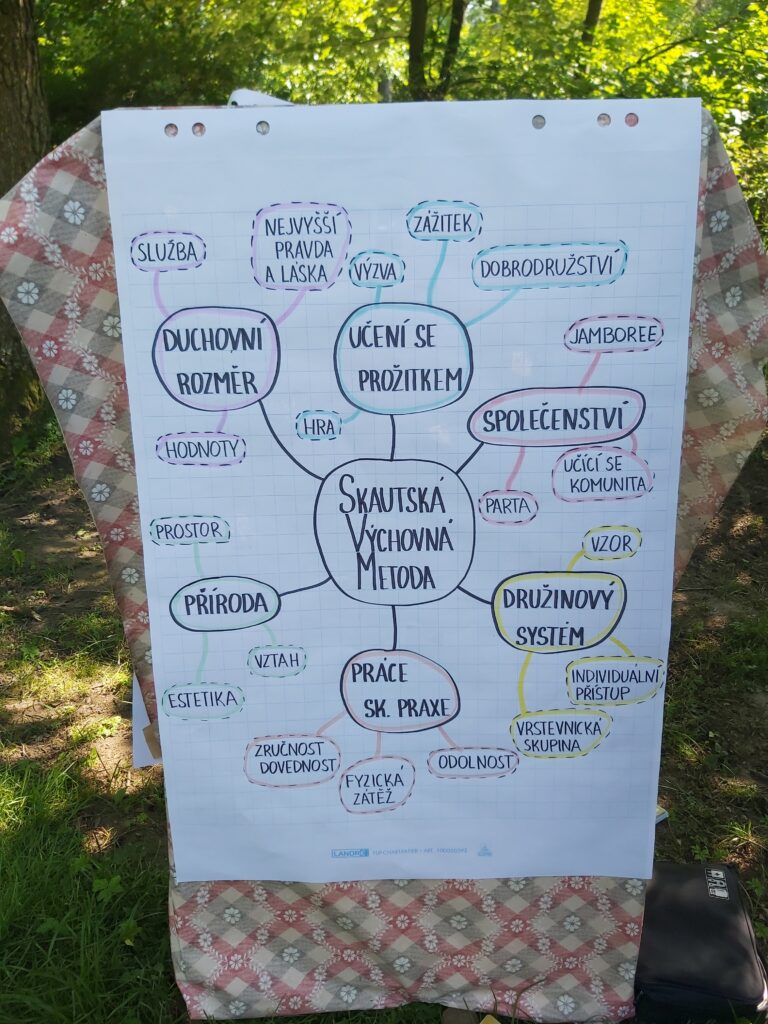 SLUŽBA
NEJVYŠŠÍ
PRAVDA
A LÁSKA
DUCHOVNÍ
ROZMĚR
HODNOTY
VÝZVA
ZÁŽITEK
DOBRODRUŽSTVÍ
UČENÍ SE
PROŽITKEM
HRA
JAMBOREE
SPOLEČENSTVÍ
PARTA
UČÍCÍ SE
KOMUNITA
SKAUTSKÁ
VÝCHOVNÁ
METODA
PROSTOR
PŘÍRODA
ESTETIKA
VZTAH
VZOR
DRUŽINOVÝ
SYSTÉM
INDIVIDUÁLNÍ
PŘÍSTUP
VRSTEVNICKÁ
SKUPINA
PRÁCE
SK. PRAXE
ZRUČNOST
DOVEDNOST
FYZICKÁ
ZÁTĚŽ
ODOLNOST
LANDRÉ